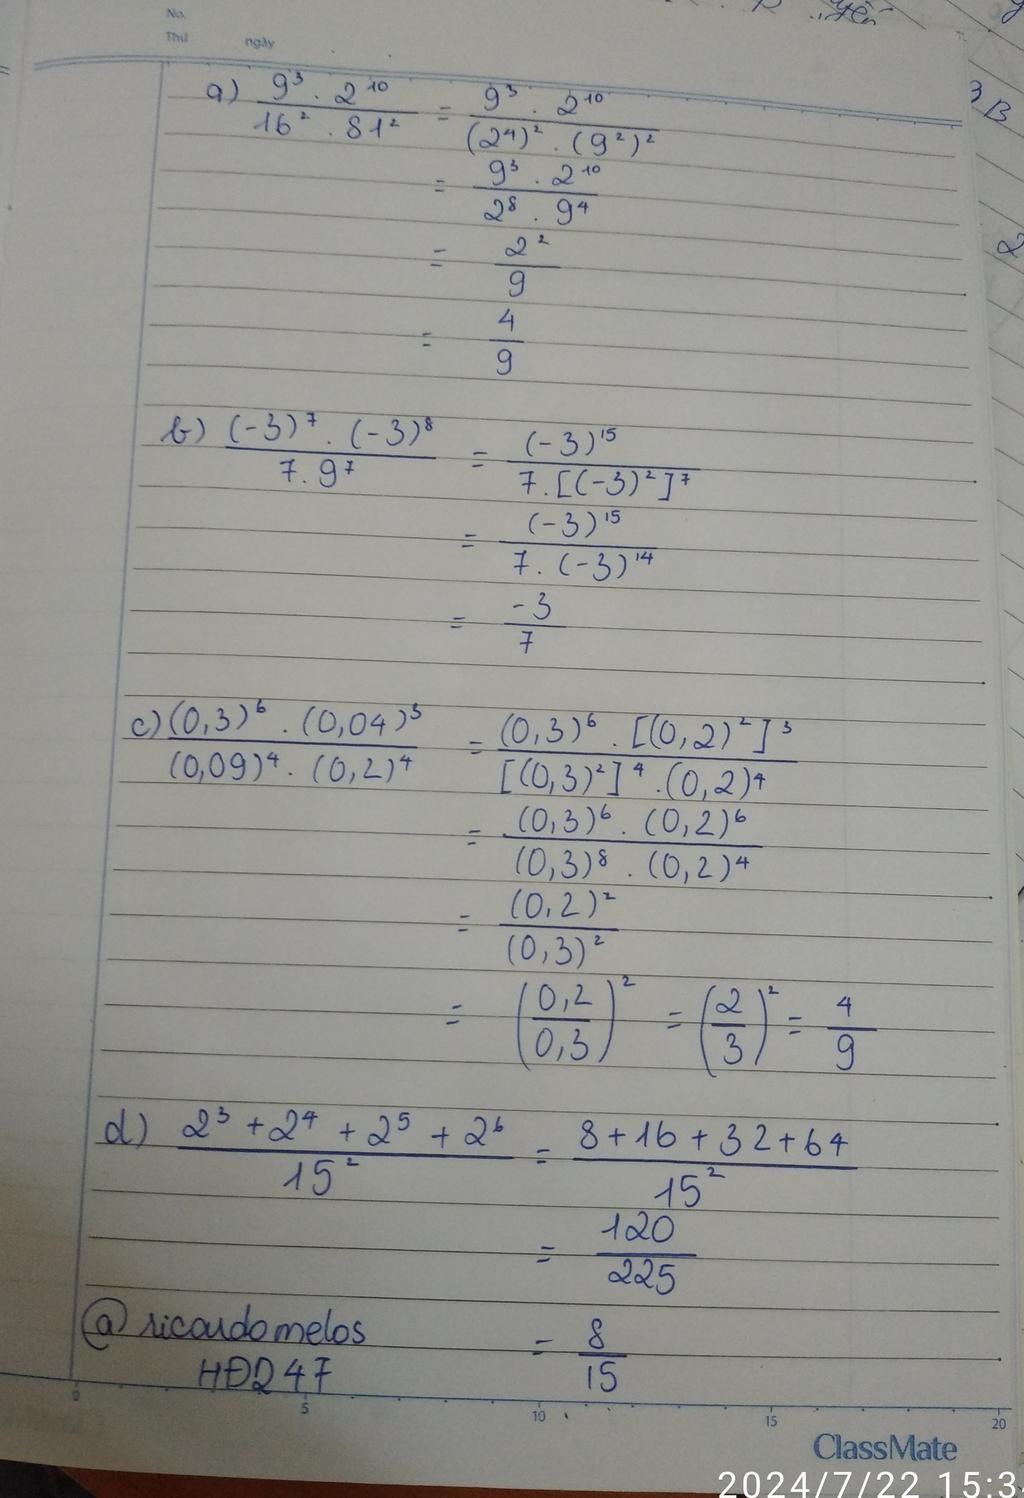 No.
Thứ ngày
a) 9³ . 2¹⁰ / 16² . 81² = 9³ . 2¹⁰ / (2⁴)² . (9²)²
= 9³ . 2¹⁰ / 2⁸ . 9⁴
= 2² / 9
= 4 / 9
b) (-3)⁷ . (-3)⁸ / 7 . 9⁷ = (-3)¹⁵ / 7 . [(-3)²]⁷
= (-3)¹⁵ / 7 . (-3)¹⁴
= -3 / 7
c) (0,3)⁶ . (0,04)³ / (0,09)⁴ . (0,2)⁴ = (0,3)⁶ . [(0,2)²]³ / [(0,3)²]⁴ . (0,2)⁴
= (0,3)⁶ . (0,2)⁶ / (0,3)⁸ . (0,2)⁴
= (0,2)² / (0,3)²
= (0,2 / 0,3)² = (2 / 3)² = 4 / 9
d) 2³ + 2⁴ + 2⁵ + 2⁶ / 15² = 8 + 16 + 32 + 64 / 15²
= 120 / 225
@ricardomelos = 8 / 15
HĐ247
0 5 10 15 20
ClassMate
2024/7/22 15:3